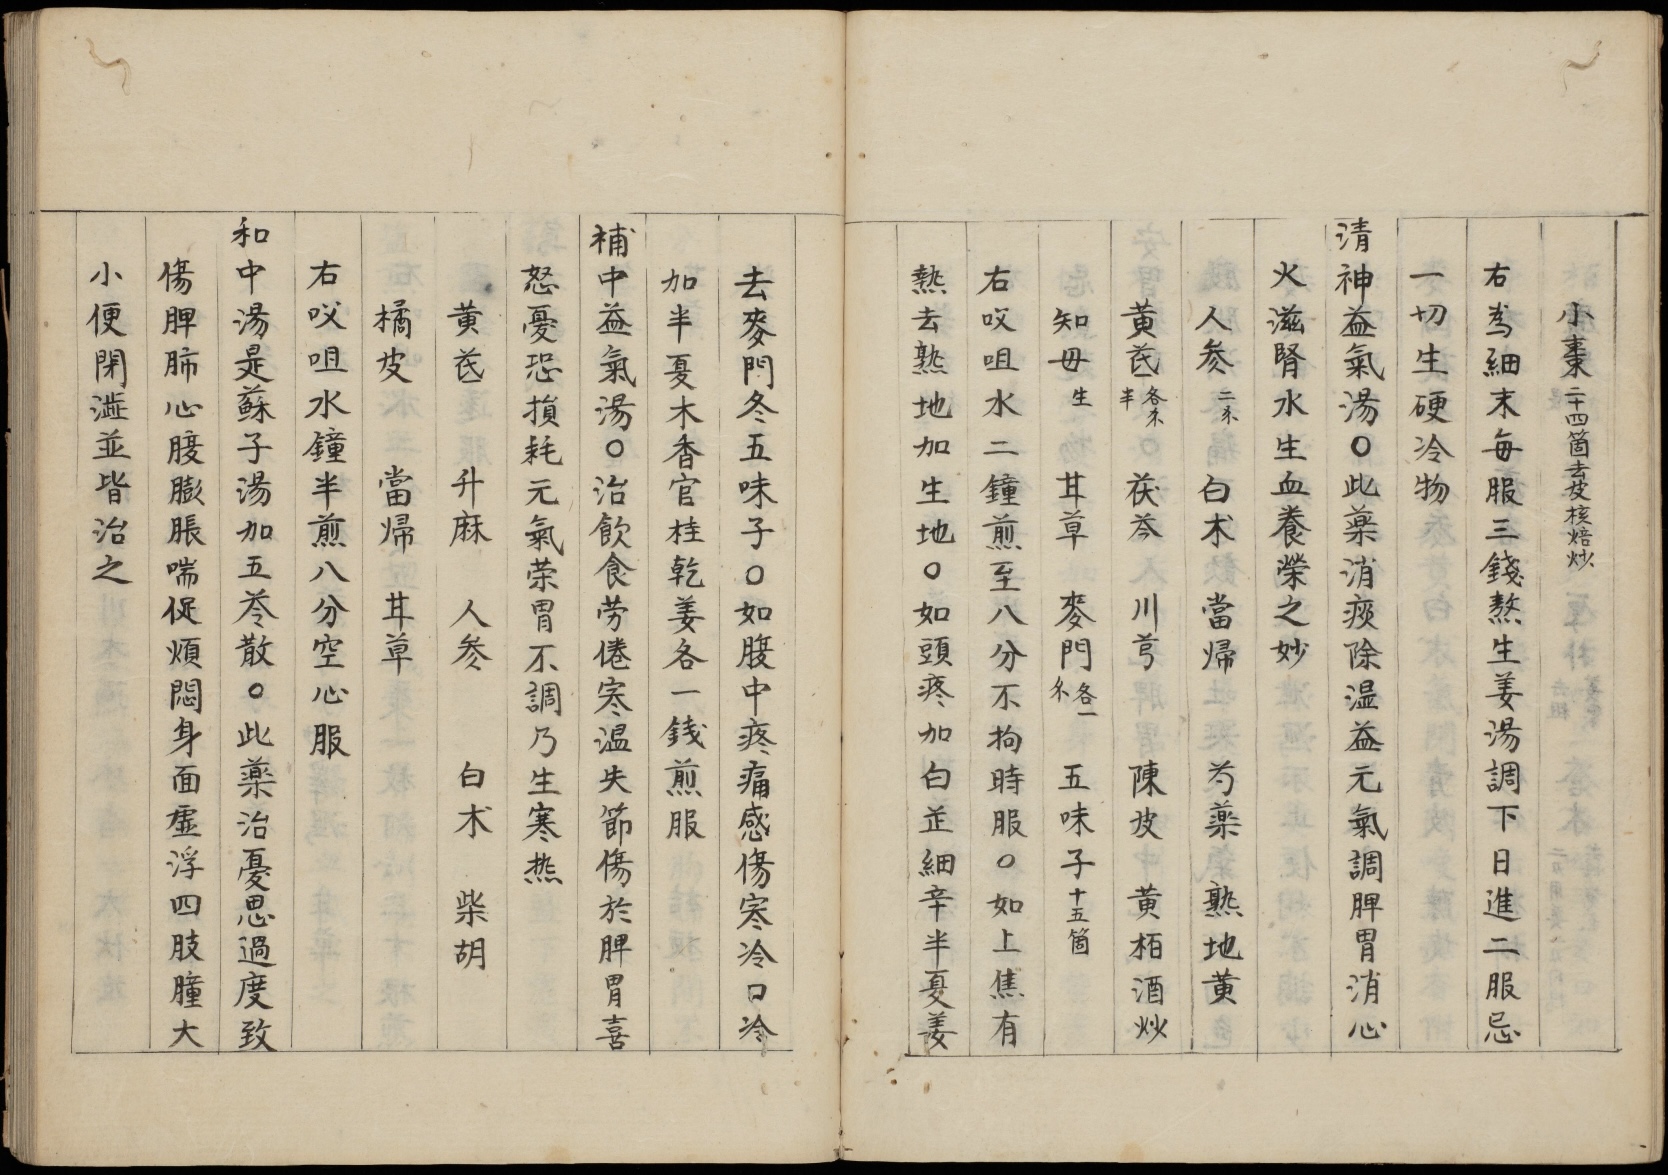 小棗二十四箇去皮核焙炒
右為細末每服三錢熬生姜湯調下日進二服忌
一切生硬冷物
清神益氣湯〇此藥消痰除温益元氣調脾胃消心
火滋腎水生血養榮之妙
人参二不 白术 當歸 芍藥 熟地黄
黄芪各不半 茯苓 川芎 陳皮 黄栢酒炒
知毋生 甘草 麥門各一不 五味子十五箇
右㕮咀水二鐘煎至八分不拘時服〇如上焦有
熱去熟地加生地〇如頭疼加白芷細辛半夏姜
去麥門冬五味子〇如腹中疼痛感傷寒冷口冷
加半夏木香官桂乾姜各一錢煎服
補中益氣湯〇治飲食劳倦寒温失節傷於脾胃喜
怒憂恐損耗元氣荣胃不調乃生寒热
黄芪 升麻 人参 白术 柴胡
橘皮 當歸 甘草
右㕮咀水鐘半煎八分空心服
和中湯是蘇子湯加五苓散〇此藥治憂思過度致
傷脾肺心腹膨脹喘促煩悶身面虚浮四肢腫大
小便閉澁並皆治之